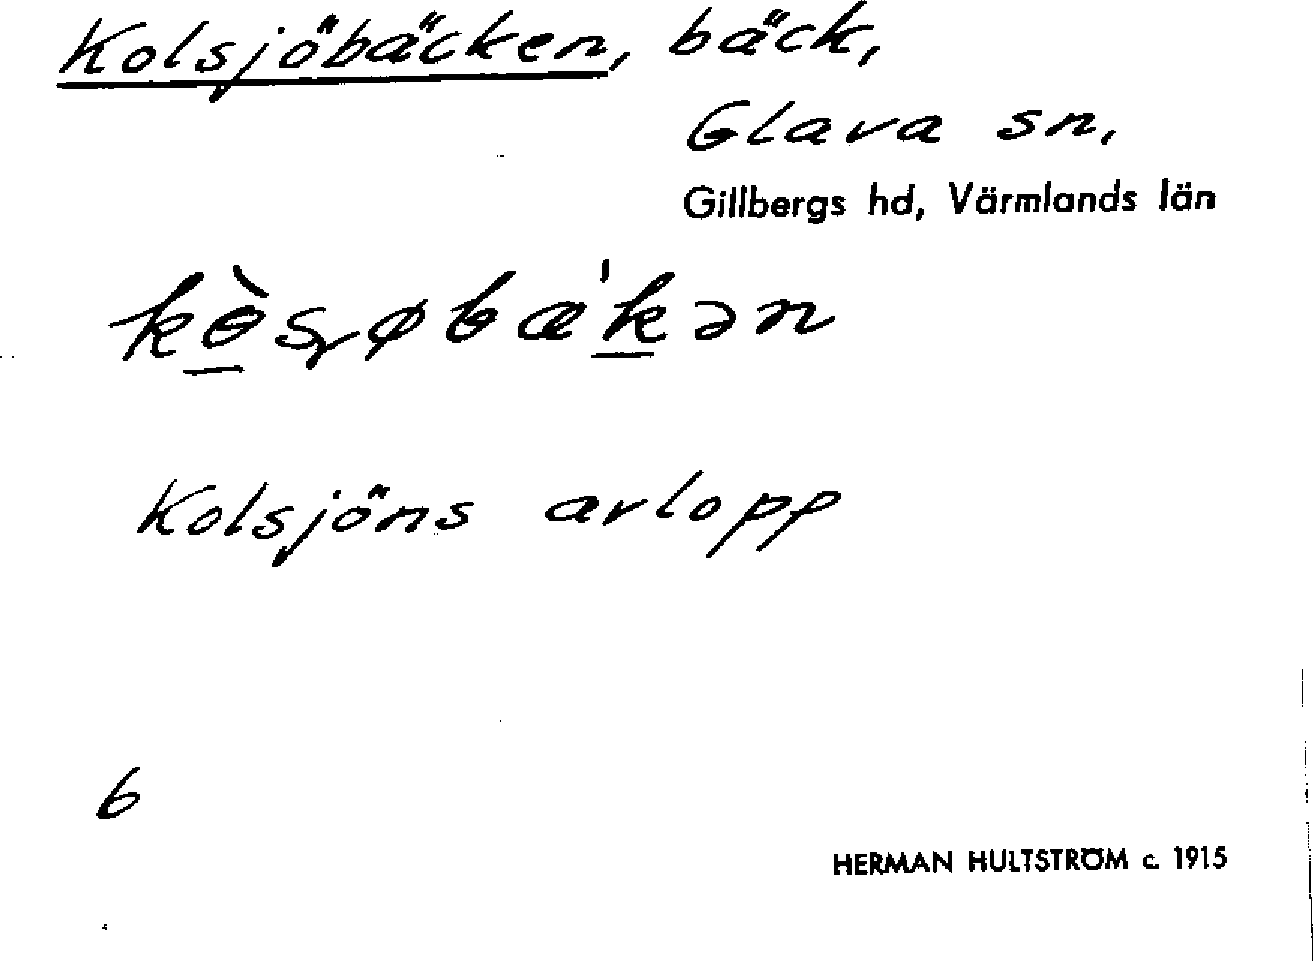 Kolsjöbäcken, bäck,
Glava sn,
Gillbergs hd, Värmlands län
kɵ̀ʂøbæ'kən
Kolsjöns avlopp
6
HERMAN HULTSTRÖM c. 1915